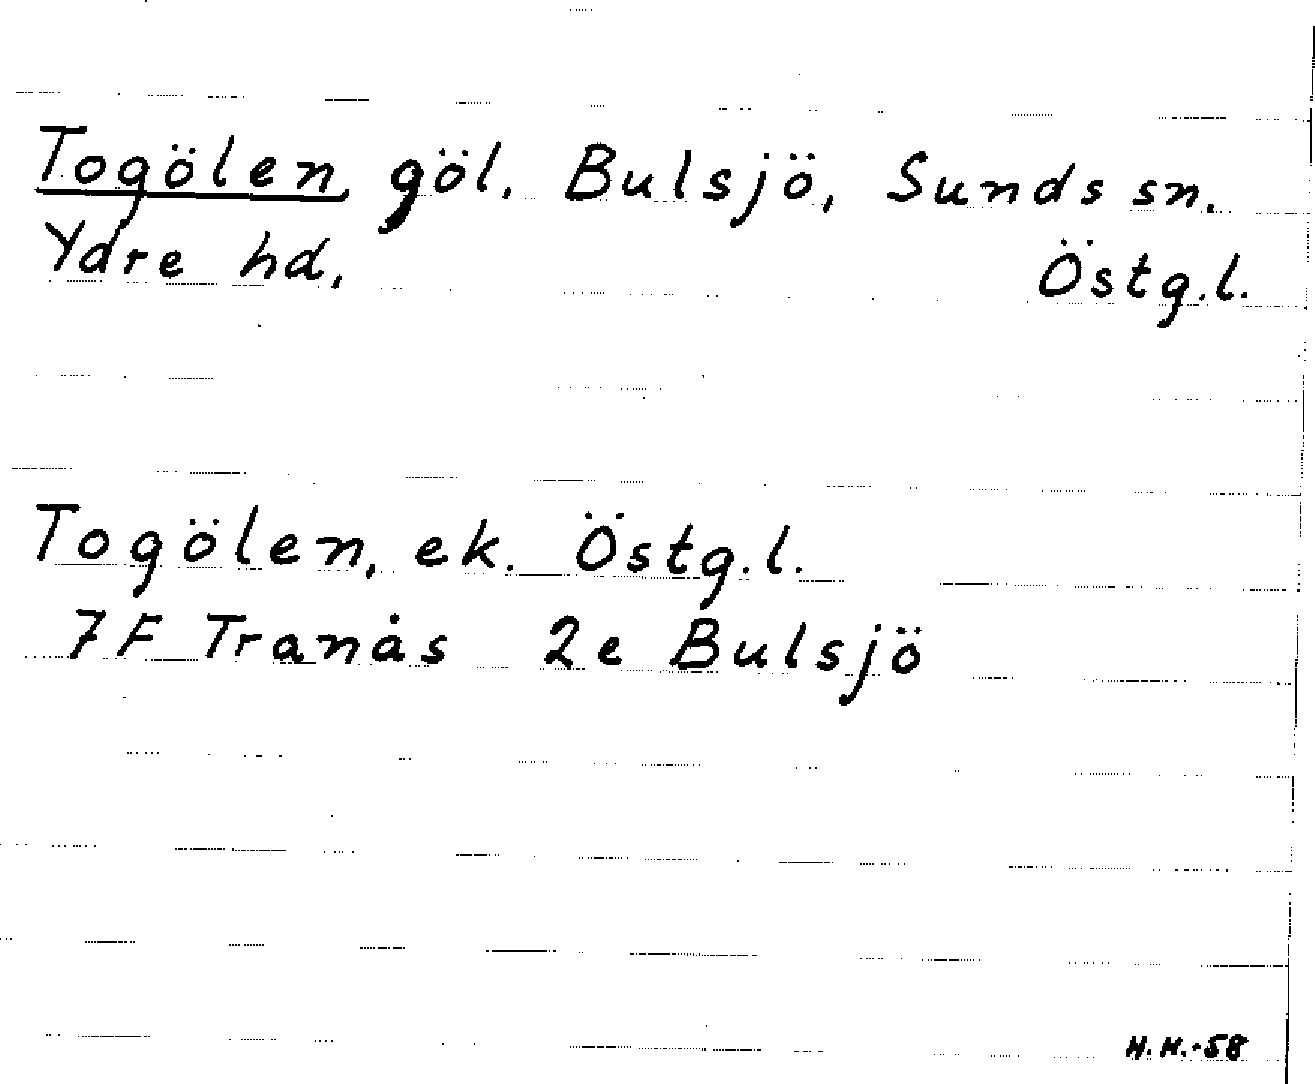 Togölen göl. Bulsjö, Sunds sn.
Ydre hd. Östg.l.
Togölen, ek. Östg.l.
7F Tranås 2e Bulsjö
H.H.-58